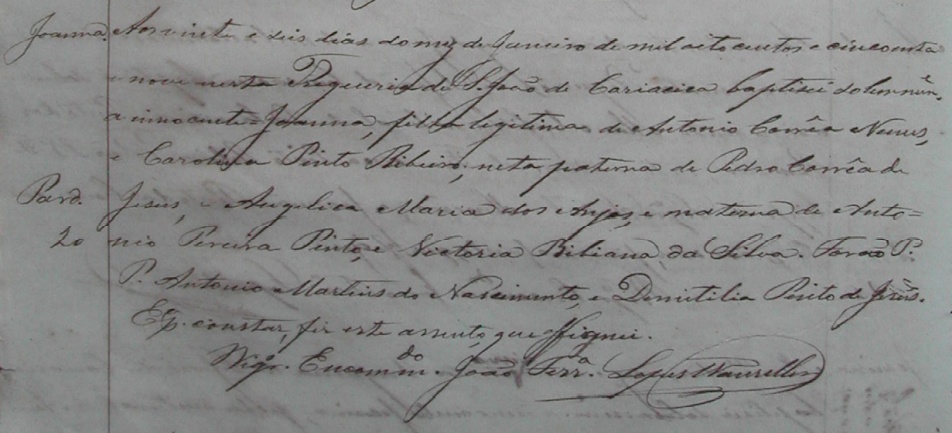 Joanna. Aos vinte e dois dias do mez de Janeiro de mil oito centos e cincoenta
e nove nesta Freguezia de S. João de Cariacica baptisei solemnem.
a innocente Joanna, filha legitima de Antonio Corrêa Nunes,
e Carolina Pinto Ribeiro, neta paterna de Pedro Corrêa de
Pard. Jesus, e Angelica Maria dos Anjos, e materna de Anto=
20 nio Pereira Pinto, e Victoria Bibiana da Silva. Forão P.
P. Antonio Martins do Nascimento, e Demitilia Pinto de Jesus.
E p. constar, fiz este assento, que assignei.
Vigr. Encommdo. João Ferra. Lopes